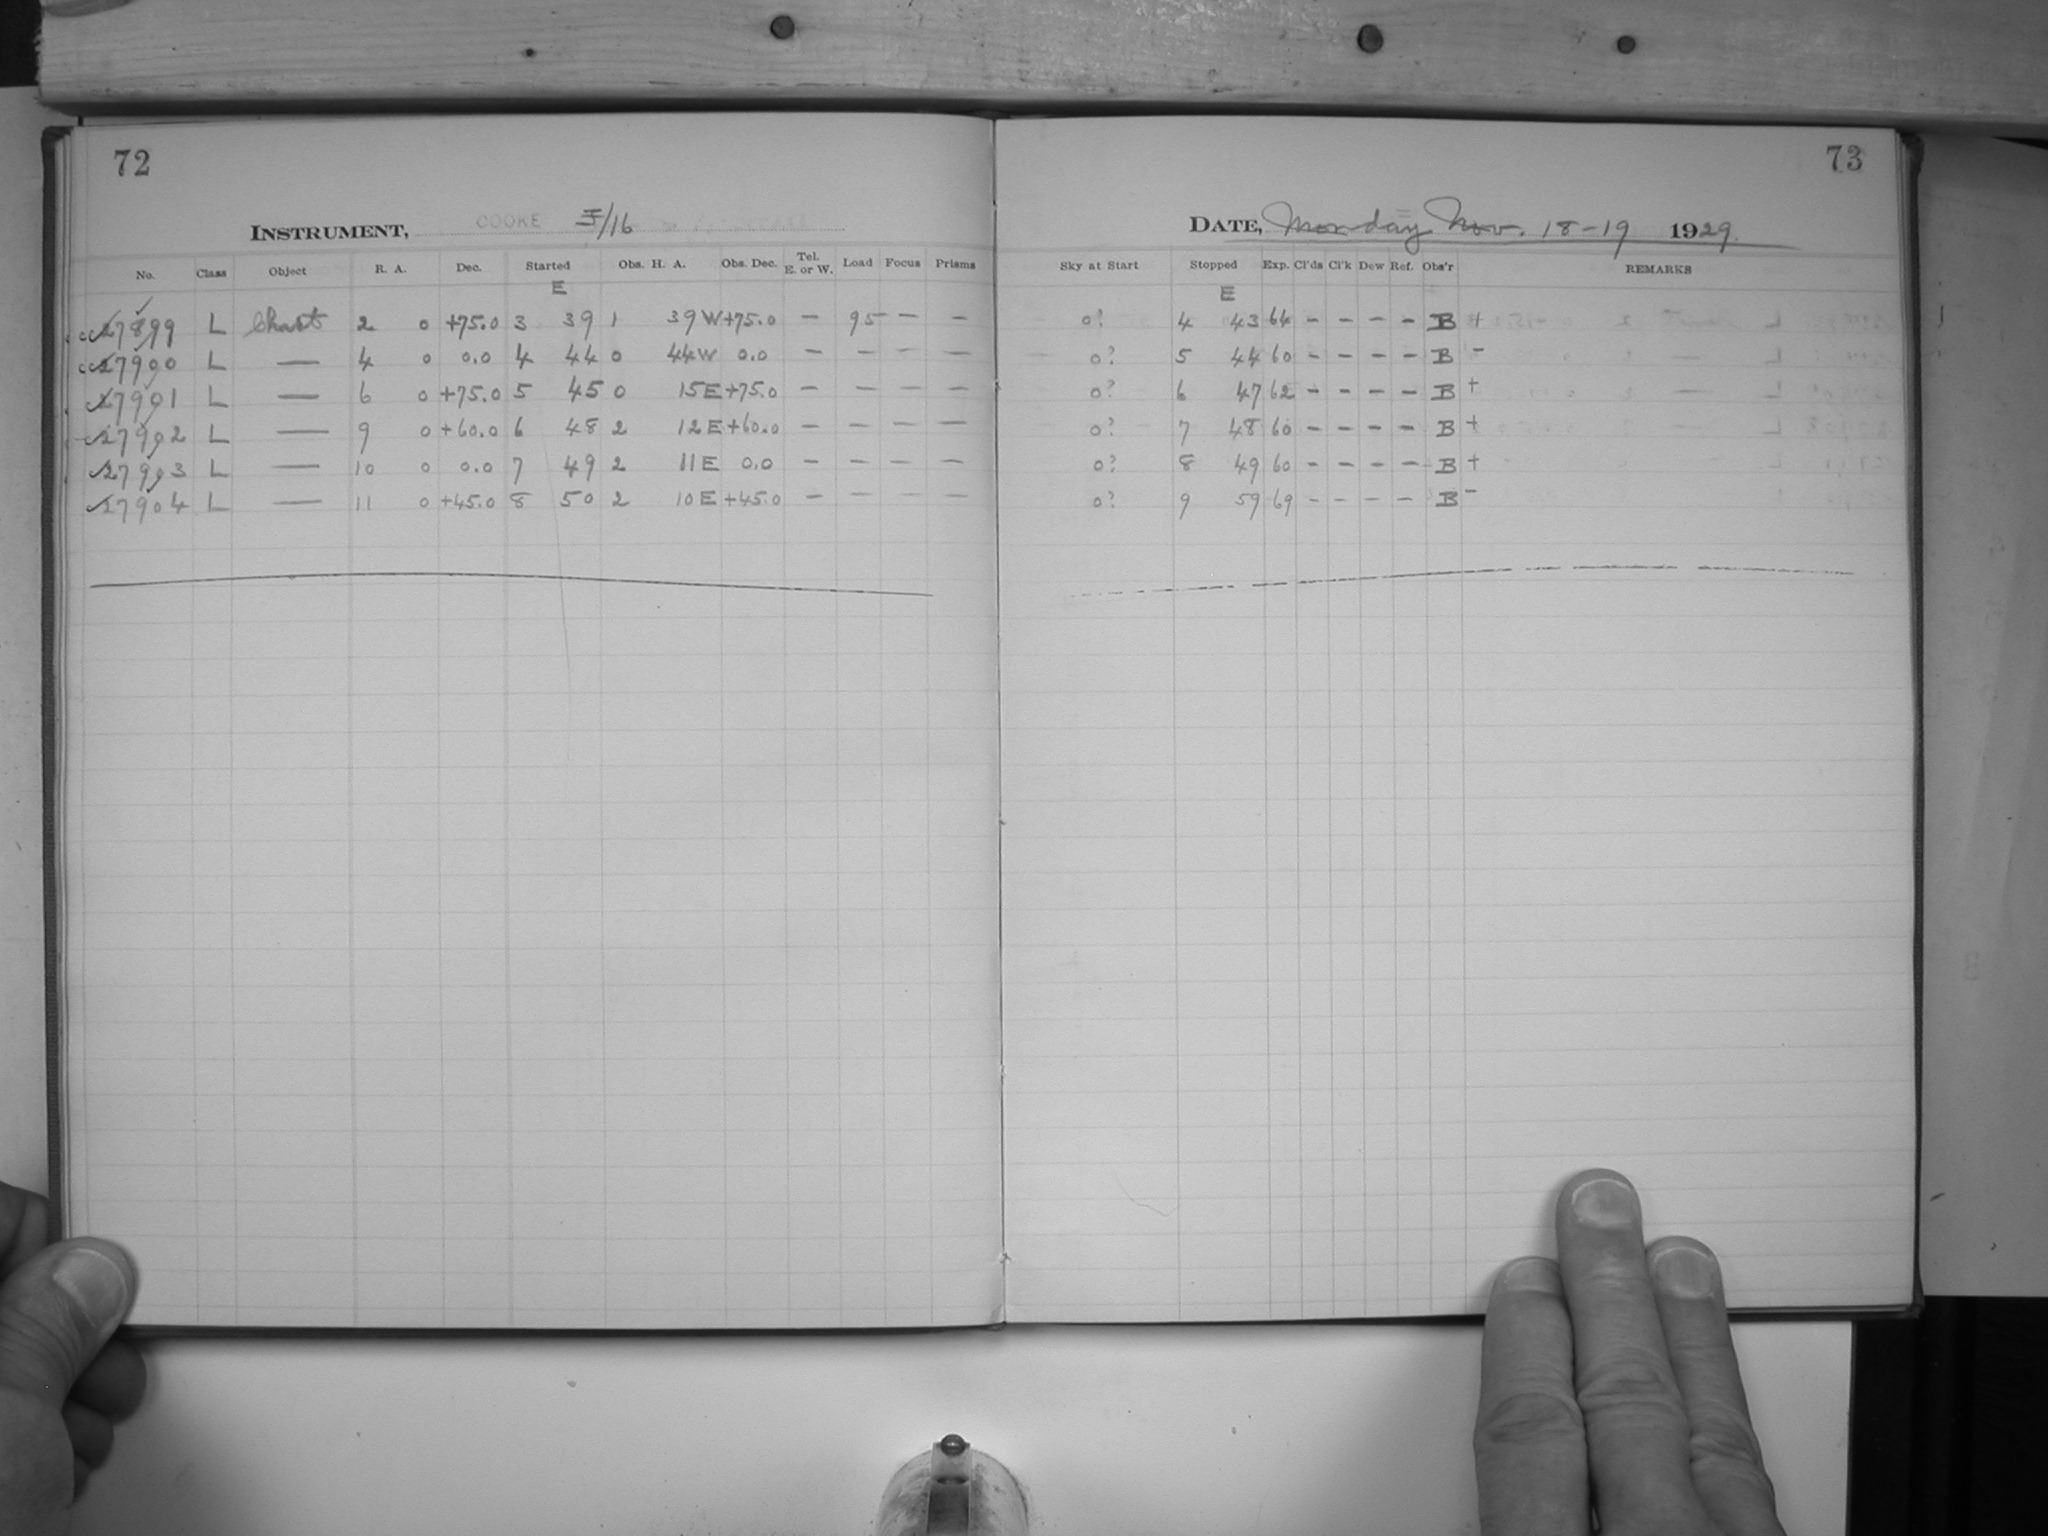 72
INSTRUMENT, COOKE I/16
No. Class Object R. A. Dec. Started Obs. H. A. Obs. Dec. Tel. E. or W. Load Focus Prisms
E
27899 L Chart 2 0 +75.0 3 39 1 39 W +75.0 — 95 — —
27900 L — 4 0 0.0 4 44 0 44 W 0.0 — — — —
27901 L — 6 0 +75.0 5 45 0 15 E +75.0 — — — —
27902 L — 9 0 +60.0 6 48 2 12 E +60.0 — — — —
27903 L — 10 0 0.0 7 49 2 11 E 0.0 — — — —
27904 L — 11 0 +45.0 8 50 2 10 E +45.0 — — — —
73
DATE, Monday Nov. 18-19 1929.
Sky at Start Stopped Exp. Cl'ds Cl'k Dew Ref. Obs'r REMARKS
E
0? 4 43 64 - - - - B +
0? 5 44 60 - - - - B -
0? 6 47 62 - - - - B +
0? 7 48 60 - - - - B +
0? 8 49 60 - - - - B +
0? 9 59 69 - - - - B -